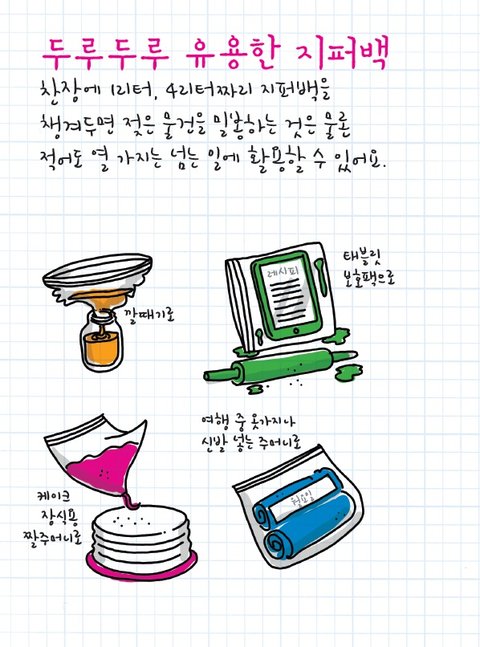 두루두루 유용한 지퍼백
찬장에 1리터, 4리터짜리 지퍼백을
챙겨두면 젖은 물건을 밀봉하는 것은 물론
적어도 열 가지는 넘는 일에 활용할 수 있어요.
깔때기로
레시피
태블릿
보호팩으로
케이크
장식용
짤주머니로
여행 중 옷가지나
신발 넣는 주머니로
월요일